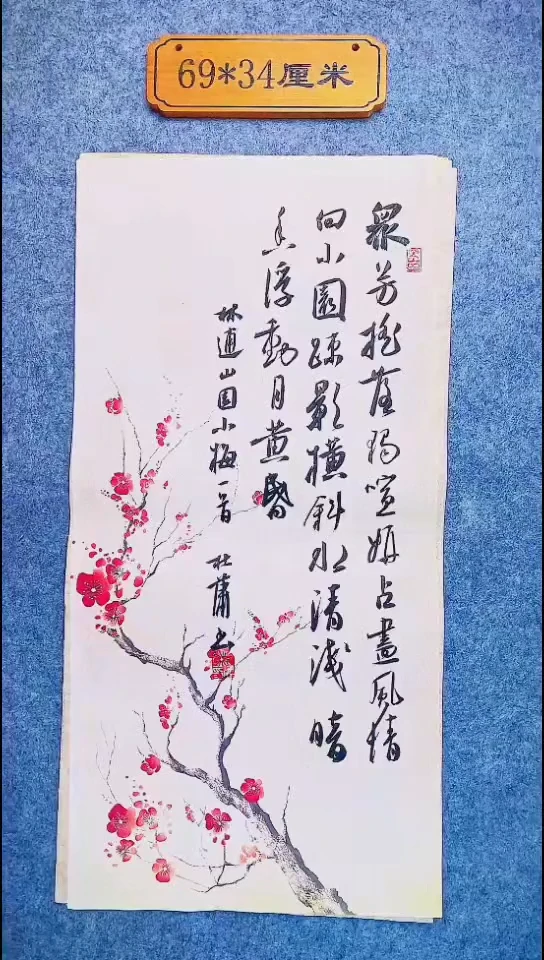 69*34厘米
眾芳搖落獨喧妍占盡風情
向小園疎影橫斜水清淺暗
香浮動月黄昏
林逋山园小梅一首 杜蕭书